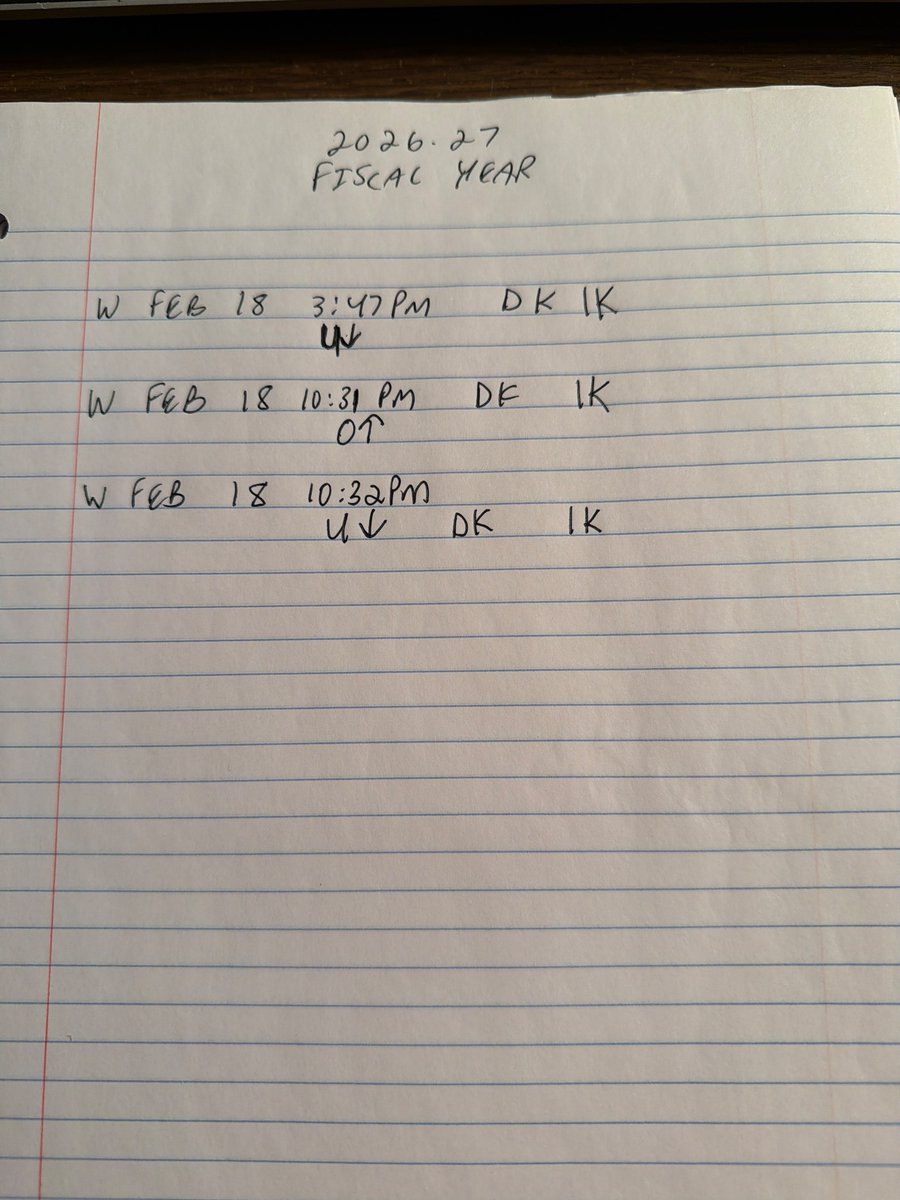 2026.27
FISCAL YEAR
W FEB 18 3:47PM DK 1K
U↓
W FEB 18 10:31 PM DK 1K
O↑
W FEB 18 10:32PM
U↓ DK 1K